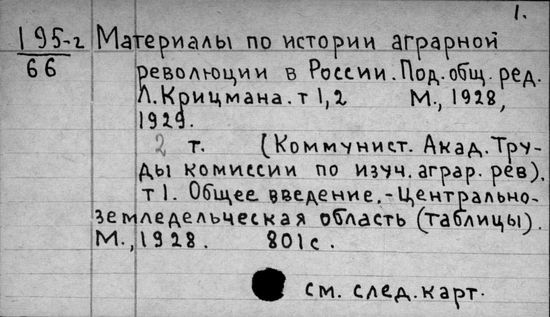 1.
195-г Материалы по истории аграрной
66 революции в России. Под. общ. ред.
Л. Крицмана. т 1, 2 М., 1928,
1929.
2 т. (Коммунист. Акад. Тру-
ды комиссии по изуч. аграр. рев).
т 1. Общее введение. - Центрально-
земледельческая область (таблицы).
М., 1928. 801 с.
см. след. карт.